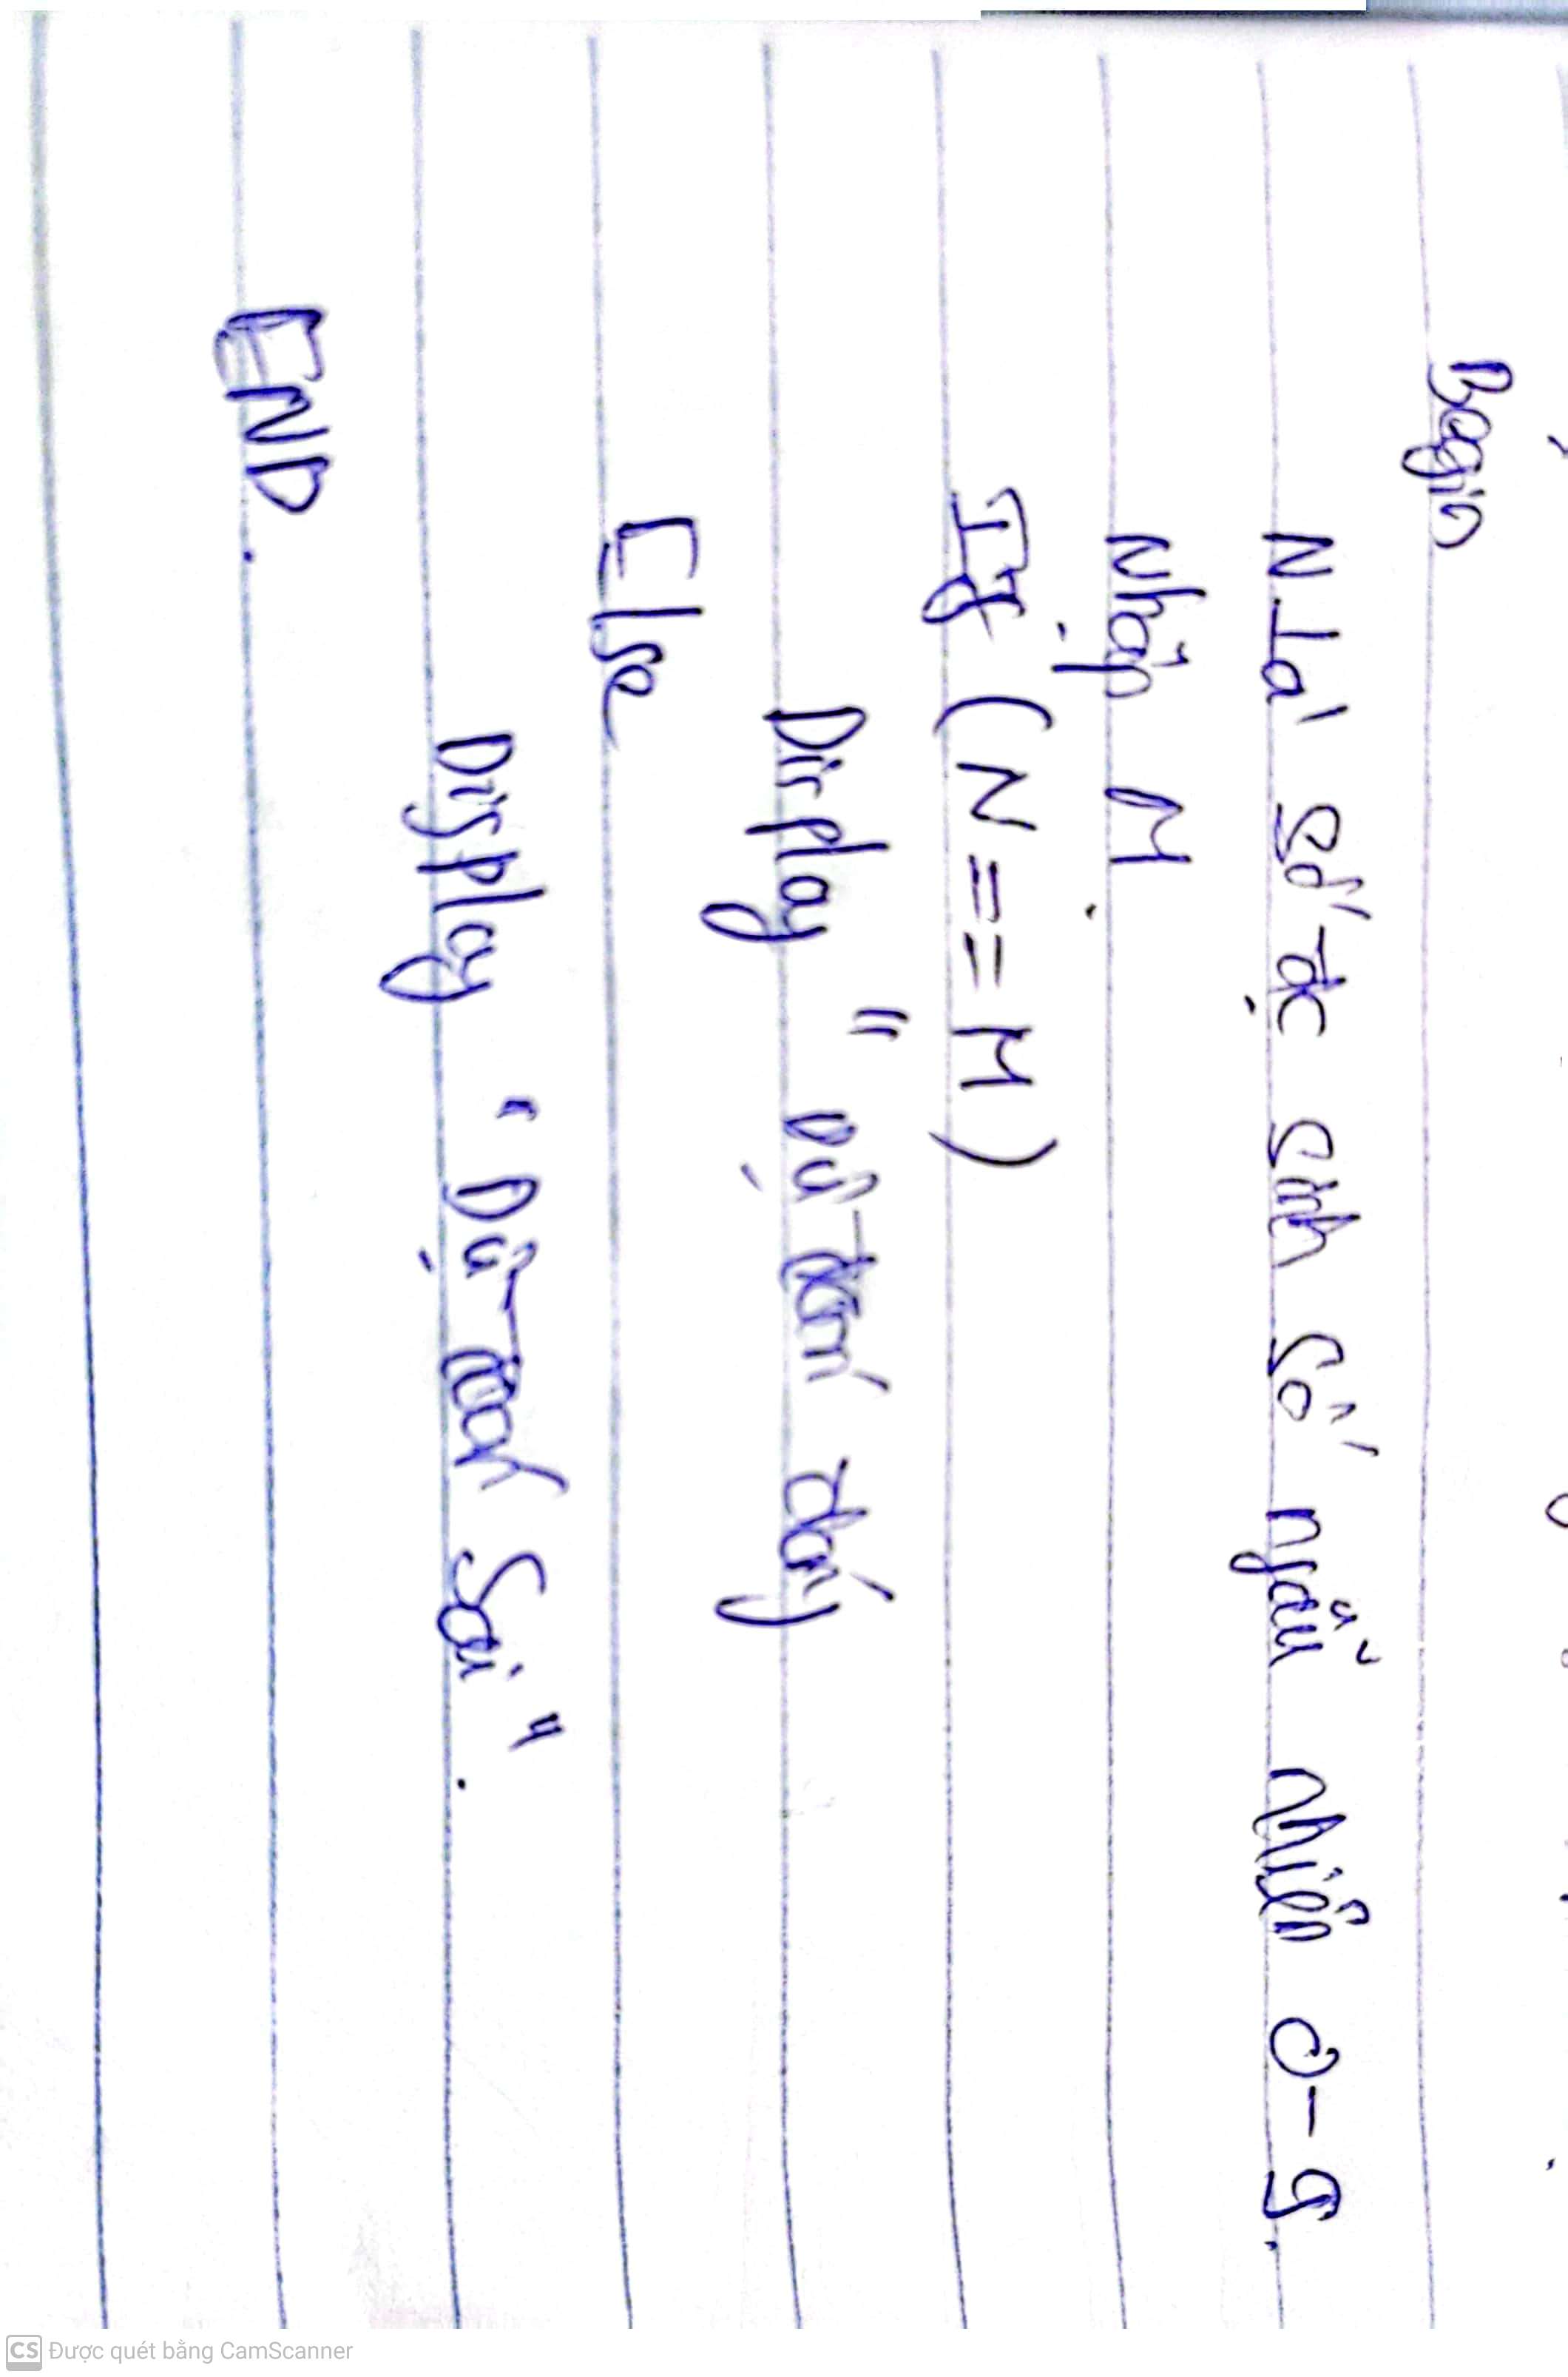 Begin
N là số đc sinh số ngẫu nhiên 0-9.
Nhập M.
If (N == M)
Display " Dự đoán đúng
Else
Display " Dự đoán Sai".
END.
CS Được quét bằng CamScanner